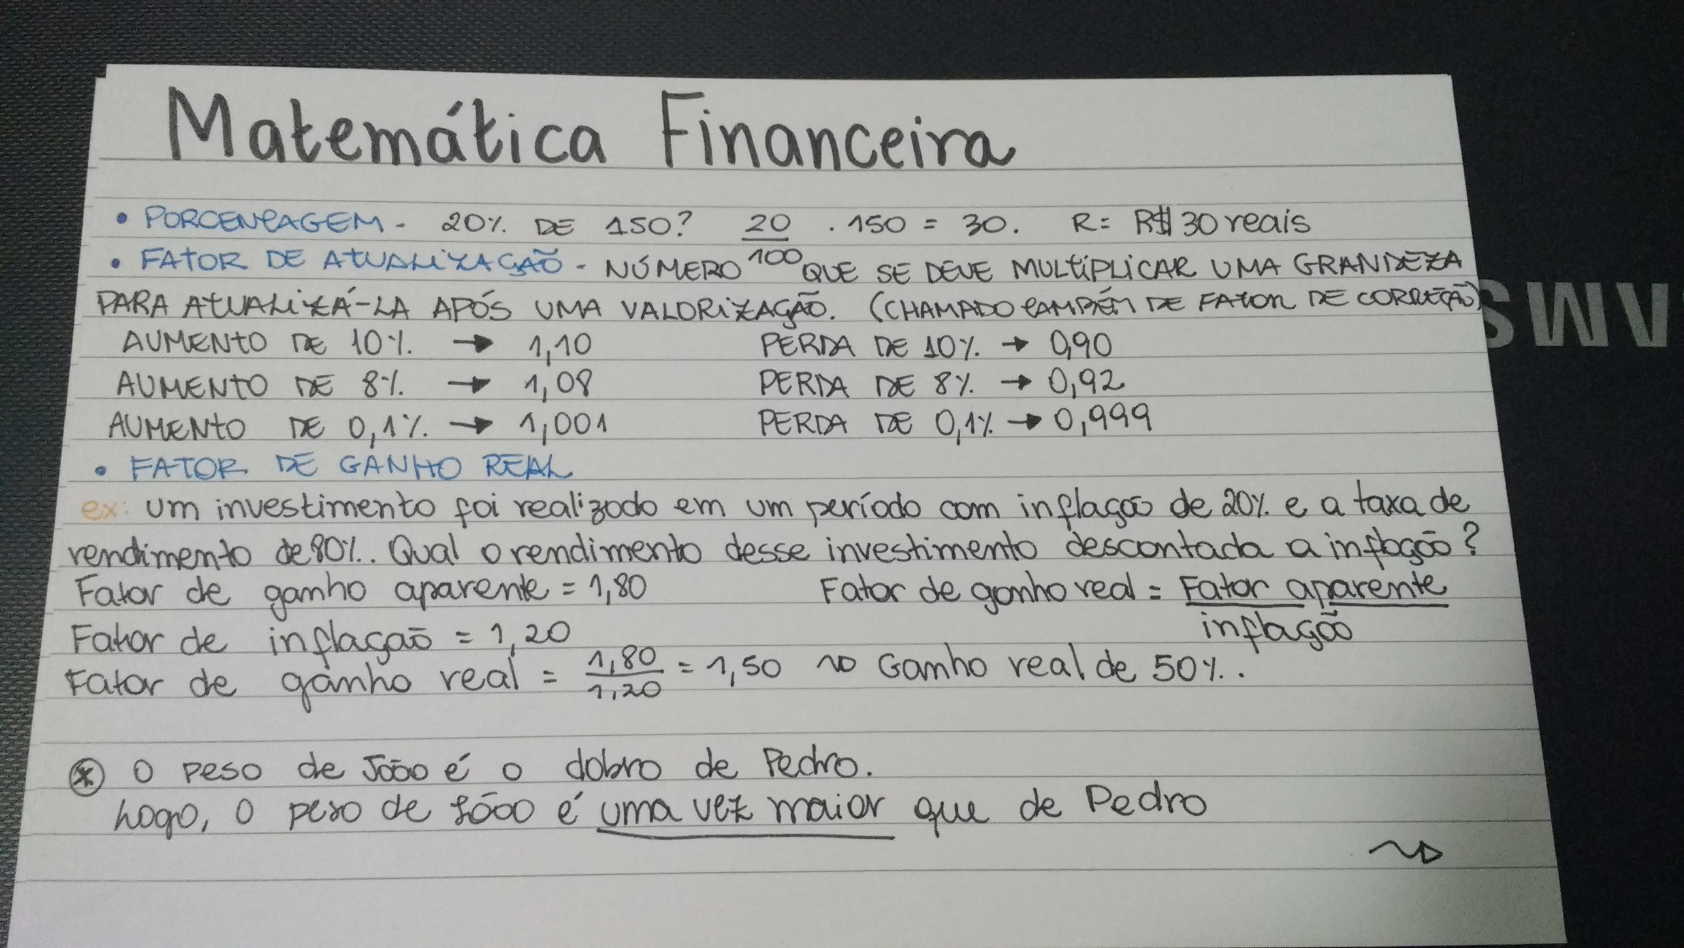 Matemática Financeira
• PORCENTAGEM - 20% DE 150? 20/100 . 150 = 30. R= R$30 reais
• FATOR DE ATUALIZAÇÃO - NÚMERO QUE SE DEVE MULTIPLICAR UMA GRANDEZA
PARA ATUALIZÁ-LA APÓS UMA VALORIZAÇÃO. (CHAMADO TAMBÉM DE FATOR DE CORREÇÃO)
AUMENTO DE 10% → 1,10 PERDA DE 10% → 0,90
AUMENTO DE 8% → 1,08 PERDA DE 8% → 0,92
AUMENTO DE 0,1% → 1,001 PERDA DE 0,1% → 0,999
• FATOR DE GANHO REAL
ex: um investimento foi realizado em um período com inflação de 20% e a taxa de
rendimento de 80%. Qual o rendimento desse investimento descontada a inflação?
Fator de ganho aparente = 1,80 Fator de ganho real = Fator aparente / inflação
Fator de inflação = 1,20
Fator de ganho real = 1,80/1,20 = 1,50 ⇝ Ganho real de 50%.
* O peso de João é o dobro de Pedro.
Logo, o peso de João é uma vez maior que de Pedro
SAMS